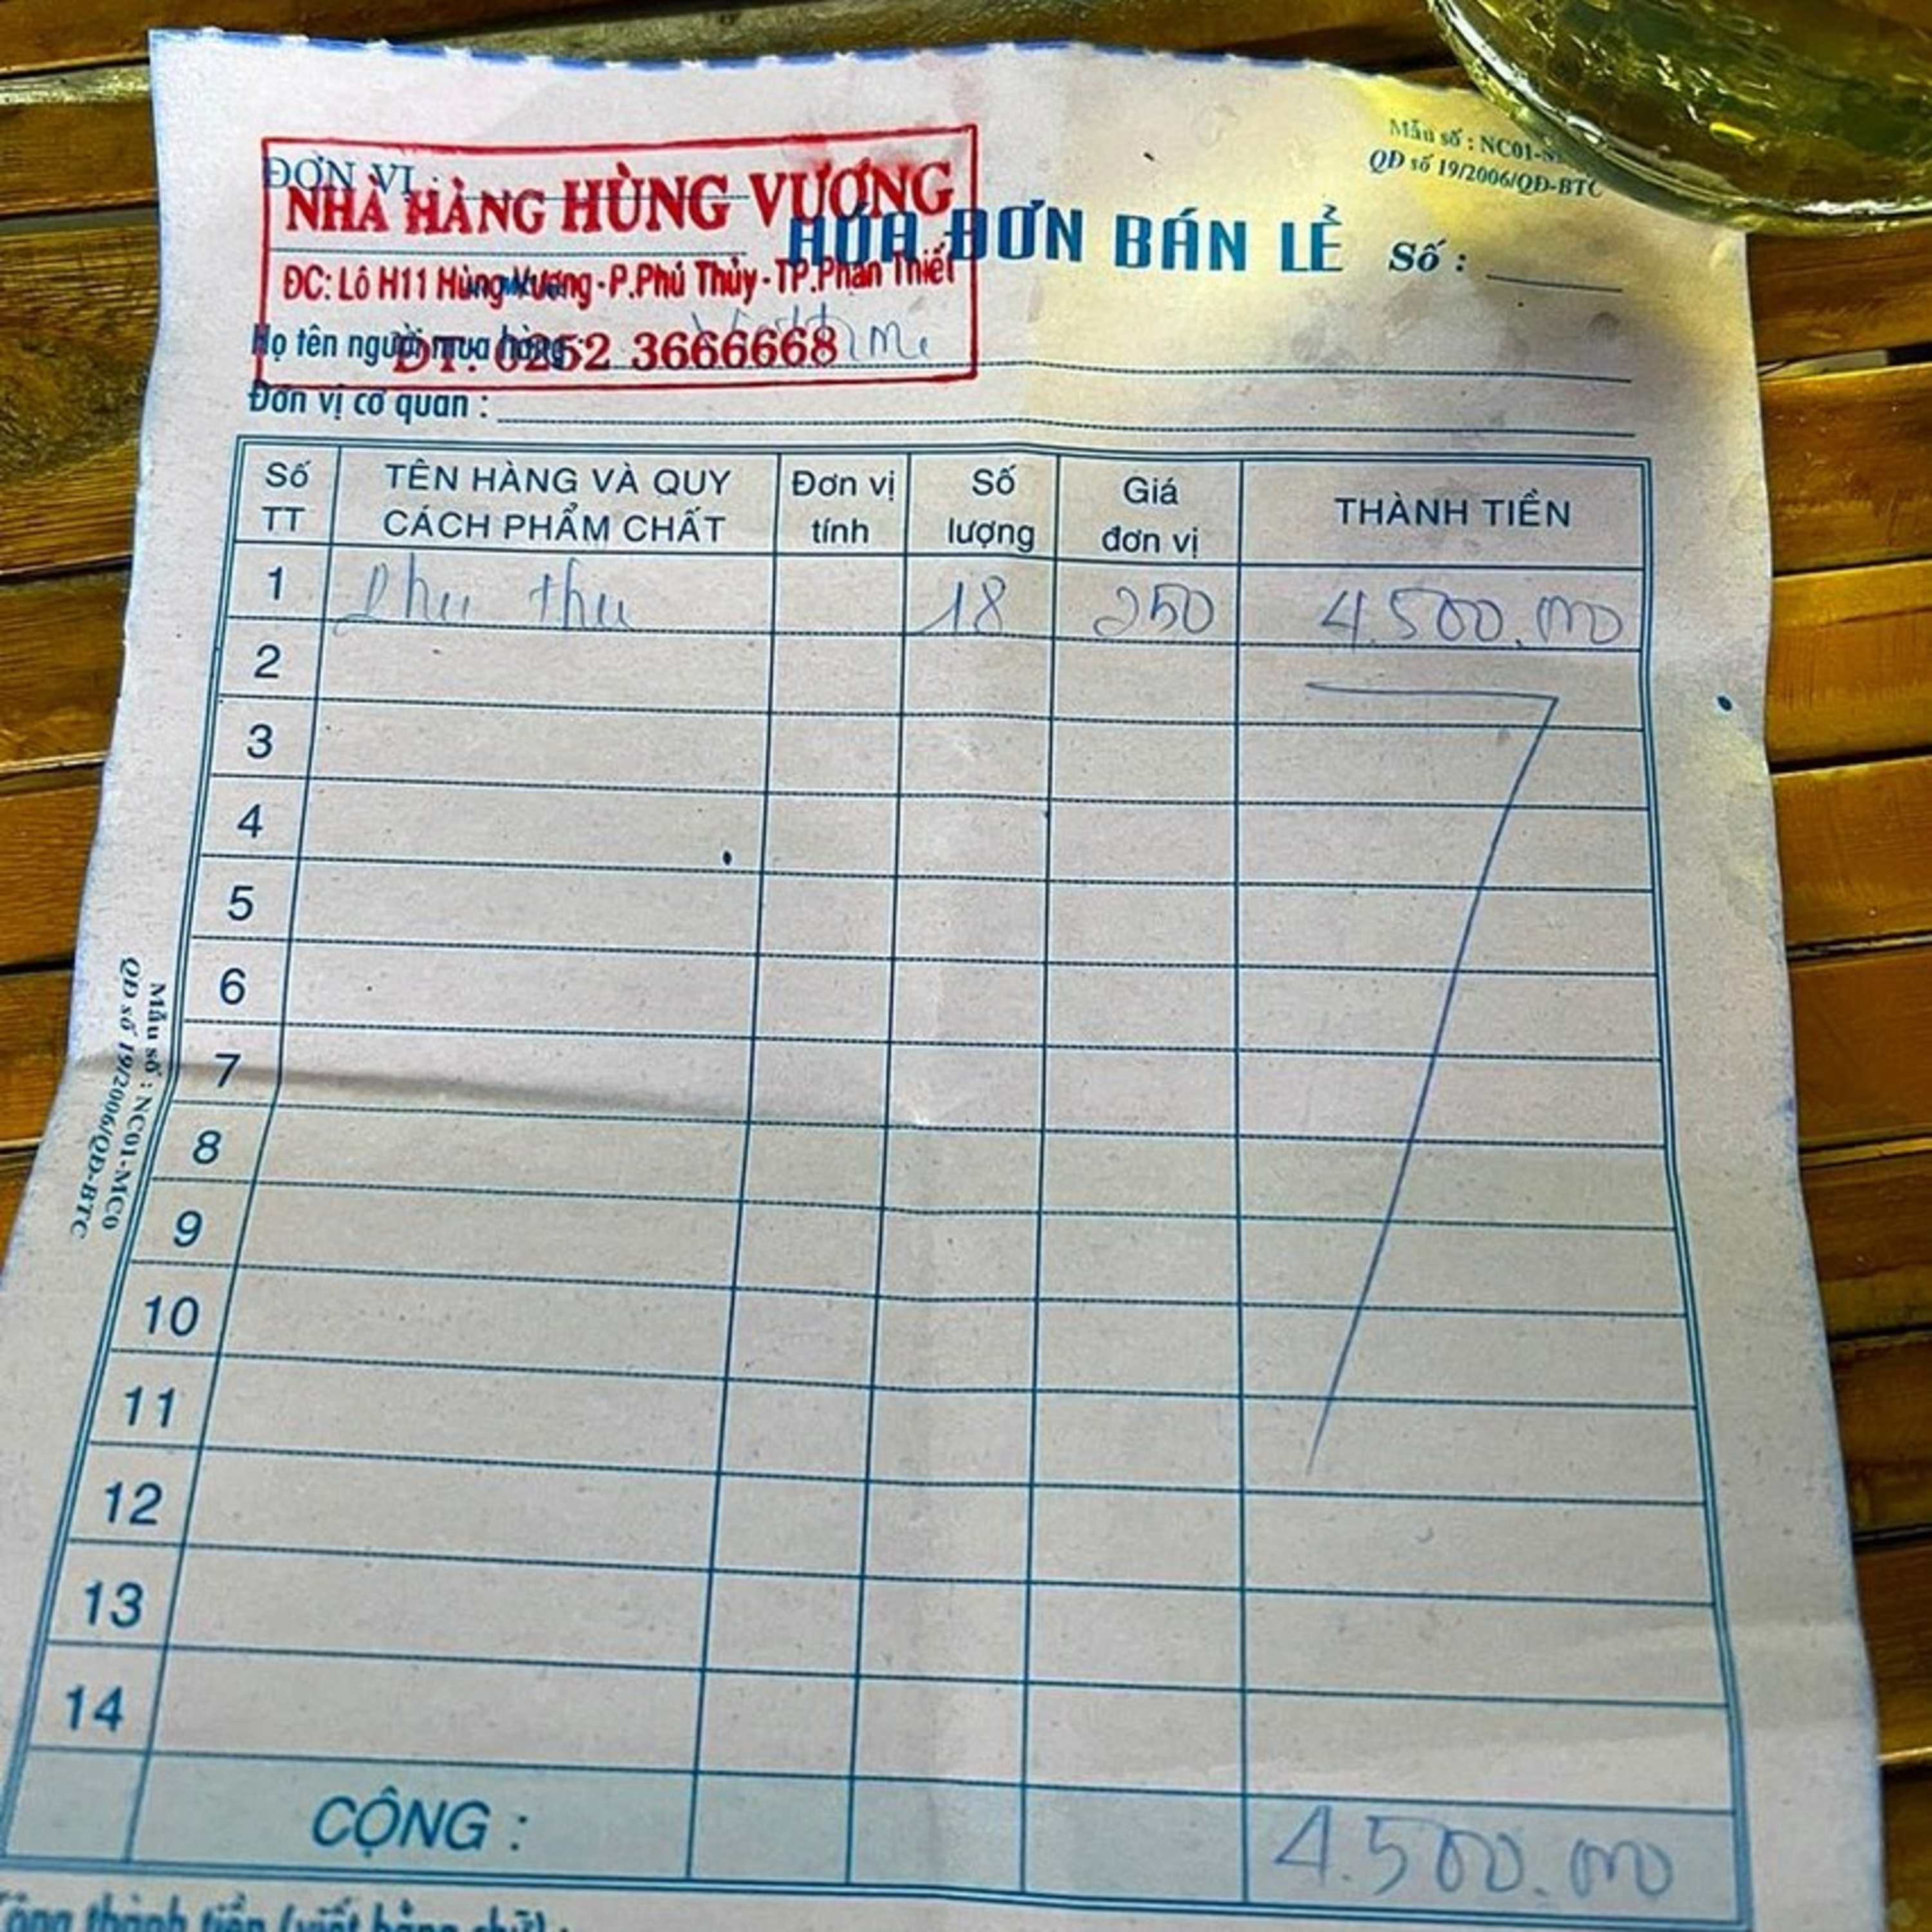 Mẫu số : NC01-
QĐ số 19/2006/QĐ-BTC
ĐƠN VỊ :
NHÀ HÀNG HÙNG VƯƠNG
HÓA ĐƠN BÁN LẺ Số :
ĐC: Lô H11 Hùng Vương - P.Phú Thủy - TP.Phan Thiết
Họ tên người mua hàng :
ĐT: 0252 3666668
Đơn vị cơ quan :
Số TT TÊN HÀNG VÀ QUY CÁCH PHẨM CHẤT Đơn vị tính Số lượng Giá đơn vị THÀNH TIỀN
1 Phu thu 18 250 4.500.000
2
3
4
5
6
7
8
9
10
11
12
13
14
CỘNG : 4.500.000
Cộng thành tiền (viết bằng chữ) :
Mẫu số : NC01-MC0
QĐ số 19/2006/QĐ-BTC